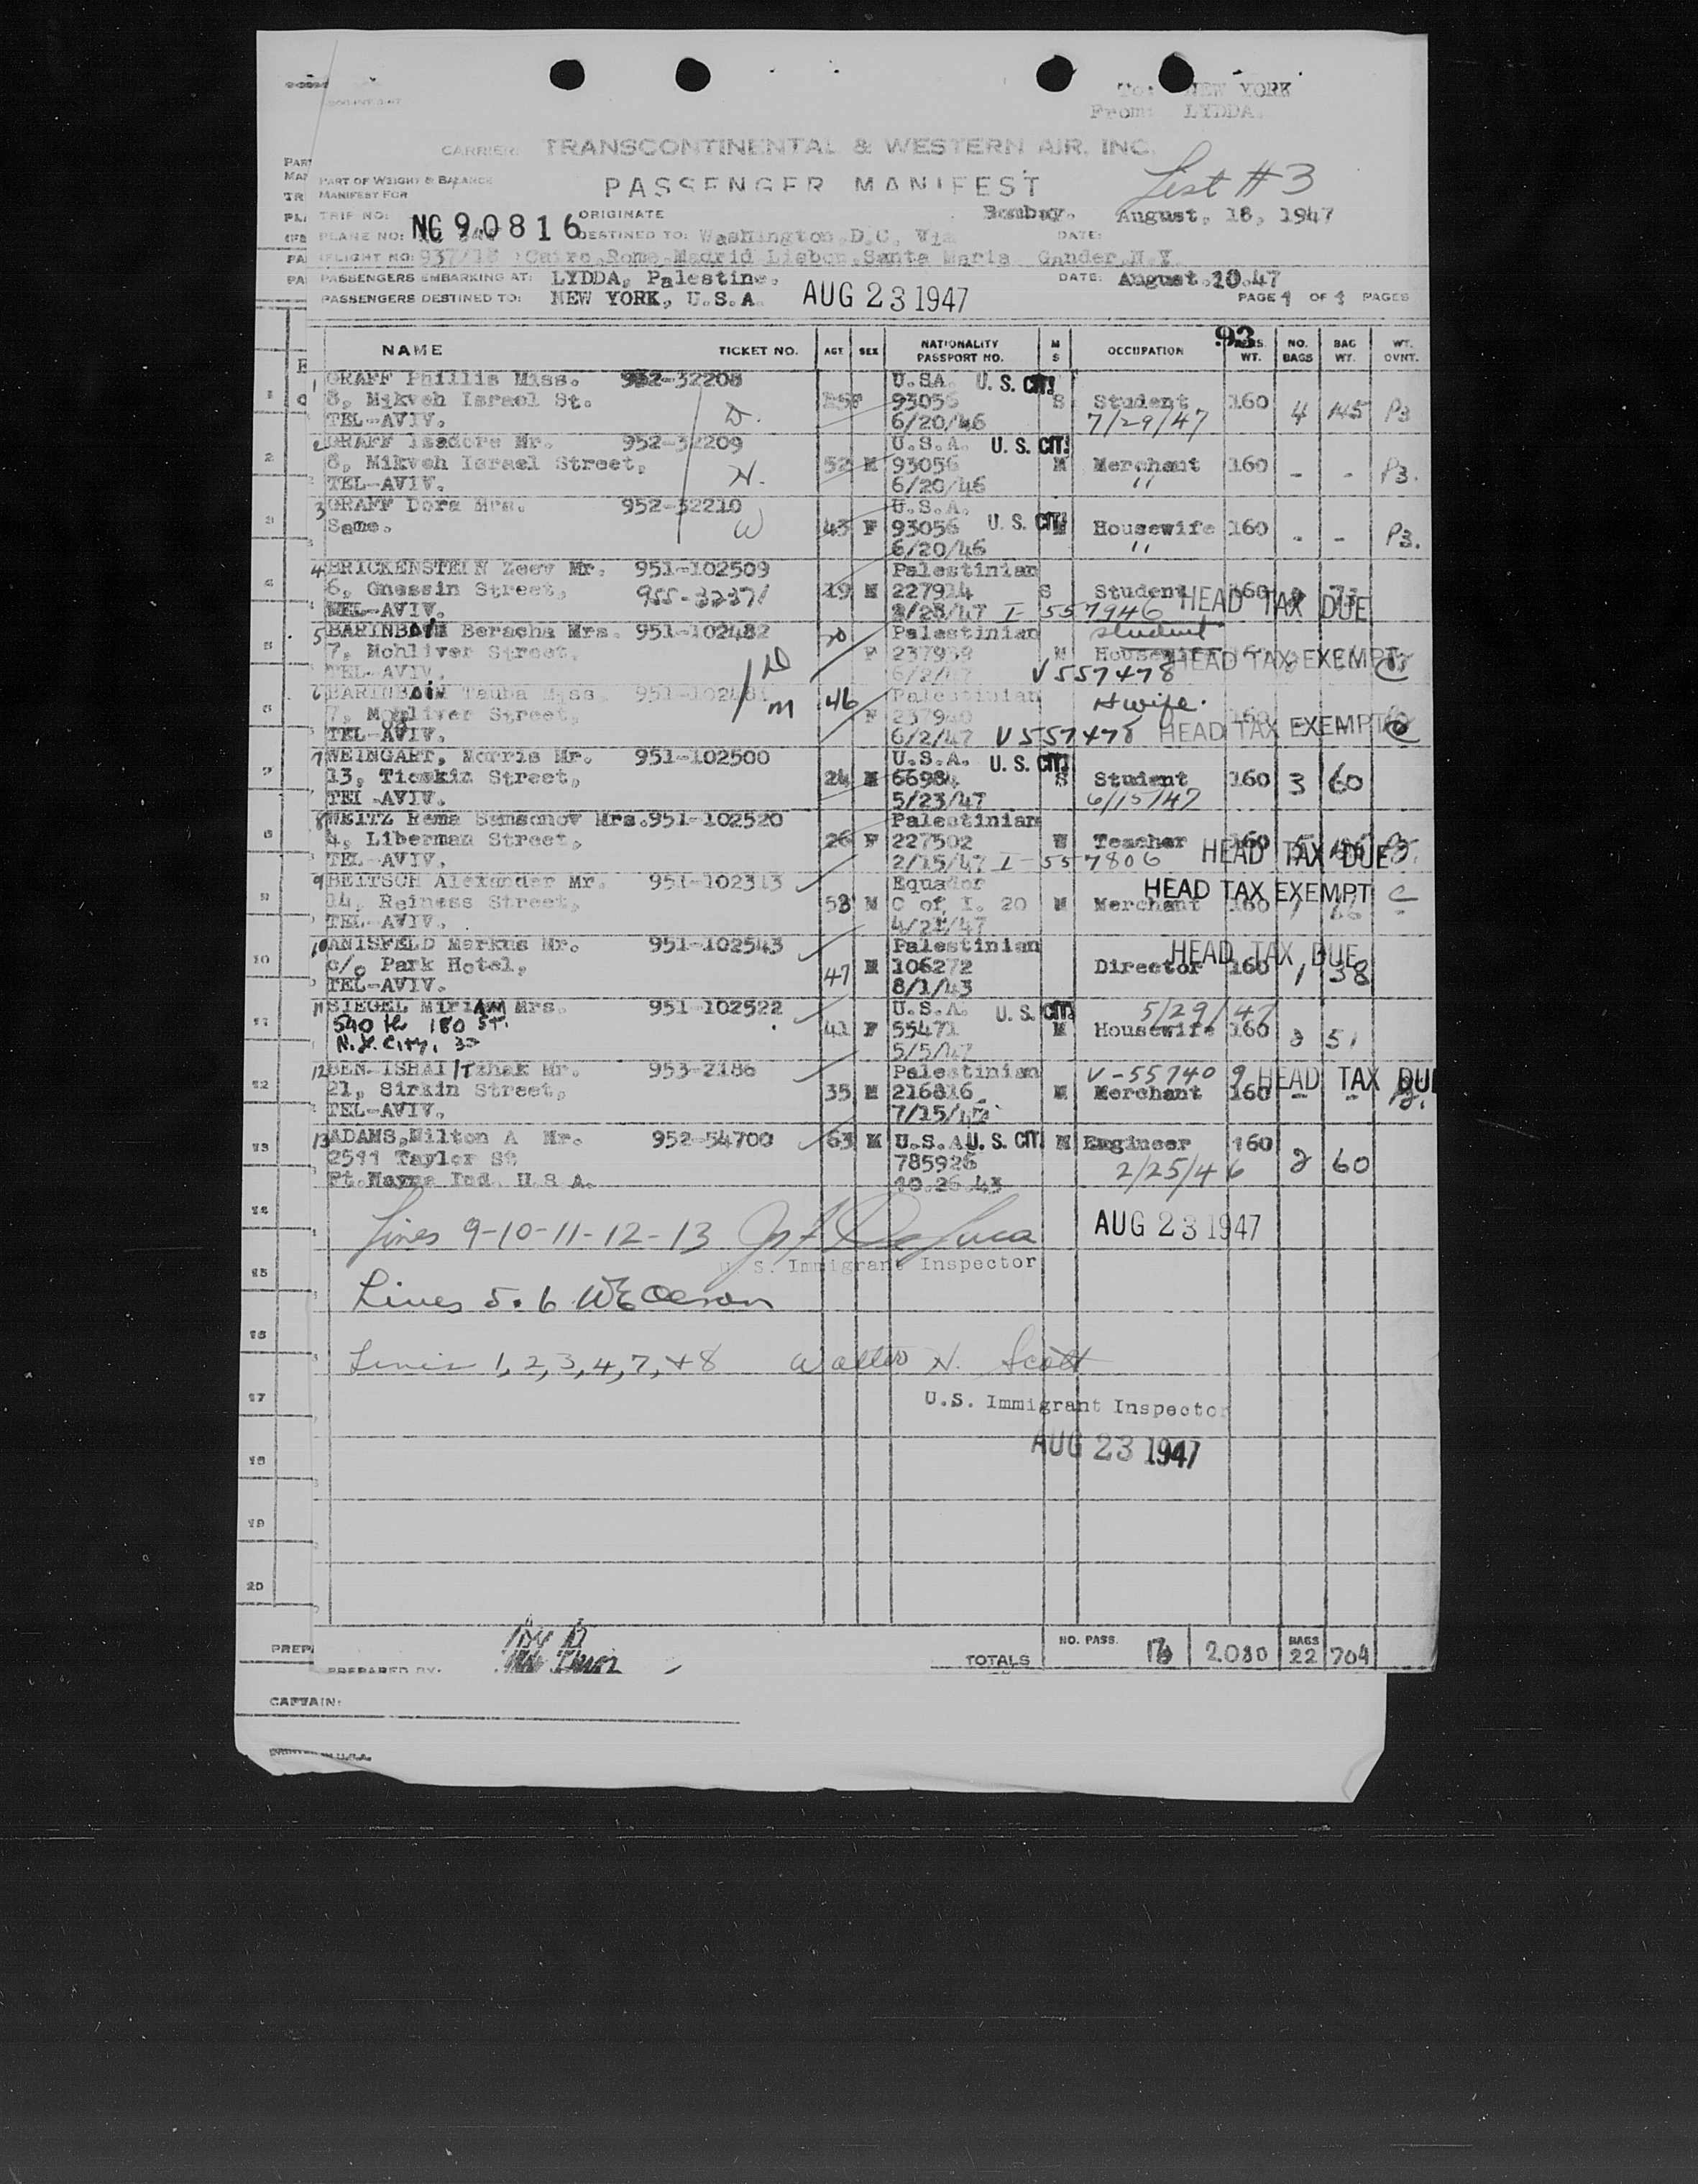 To: NEW YORK
From: LYDDA.
CARRIER: TRANSCONTINENTAL & WESTERN AIR, INC.
PASSENGER MANIFEST
List #3
PART OF WEIGHT & BALANCE
MANIFEST FOR
TRIP NO:
ORIGINATE Bombay. August, 18, 1947
PLANE NO: NC 90816 DESTINED TO: Washington D.C. Via DATE:
FLIGHT NO: 937/18 Cairo Rome Madrid Lisbon Santa Maria Gander N.Y.
PASSENGERS EMBARKING AT: LYDDA, Palestine. DATE: August.20.47
PASSENGERS DESTINED TO: NEW YORK, U.S.A. AUG 23 1947 PAGE 1 OF 1 PAGES
93
NAME TICKET NO. AGE SEX NATIONALITY PASSPORT NO. M S OCCUPATION WT. NO. BAGS BAG WT. WT. OVNT.
1 GRAFF Phillis Miss. 952-32208 U.S.A. U.S. CIT.
8, Mikveh Israel St. 93056 S Student 160 4 145 P3
TEL-AVIV. D. 6/20/46 7/29/47
2 GRAFF Isadore Mr. 952-32209 U.S.A. U.S. CIT.
8, Mikveh Israel Street, 52 M 93056 M Merchant 160 - - P3.
TEL-AVIV. H. 6/20/46 "
3 GRAFF Dora Mrs. 952-32210 U.S.A.
Same. W 43 F 93056 U.S. CIT. M Housewife 160 - - P3.
6/20/46 "
4 BRICKENSTEIN Zeev Mr. 951-102509 Palestinian
6, Gnessin Street, 955-32371 19 M 227914 S Student 160
TEL-AVIV. 2/28/47 I-557946 HEAD TAX DUE
5 BARINBOIM Beracha Mrs. 951-102482 20 Palestinian Student
7, Mohliver Street. F 237939 M Housewife HEAD TAX EXEMPT
TEL-AVIV. D 6/2/47 V557478
6 BARINBOIM Tauba Miss 951-102481 m 46 Palestinian Hwife.
7, Mohliver Street, F 237940 160
TEL-AVIV. 6/2/47 V557478 HEAD TAX EXEMPT
7 WEINGART, Morris Mr. 951-102500 U.S.A. U.S. CIT.
13, Tioskin Street, 24 M 66984 S Student 160 3 60
TEL-AVIV. 5/23/47 6/15/47
8 WEITZ Rema Samsonov Mrs. 951-102520 Palestinian
4, Liberman Street, 26 F 227502 W Teacher 160
TEL-AVIV. 2/15/47 I-557806 HEAD TAX DUE
9 BEITSCH Alexander Mr. 951-102313 Equador HEAD TAX EXEMPT C
14, Reiness Street, 53 M C of I. 20 M Merchant 160
TEL-AVIV. 4/21/47
10 ANISFELD Markus Mr. 951-102543 Palestinian HEAD TAX DUE
c/o Park Hotel, 47 M 106272 Director 160 1 38
TEL-AVIV. 8/1/43
11 SIEGEL Miriam Mrs. 951-102522 U.S.A. U.S. CIT. 5/29/47
540 W 180 St. 41 F 55471 M Housewife 160 2 51
N.Y. City, 33 5/5/47
12 BEN-ISHAI Itzhak Mr. 953-2186 Palestinian V-557409 HEAD TAX DUE
21, Sirkin Street, 35 M 216816 M Merchant 160 - -
TEL-AVIV. 7/15/
13 ADAMS, Milton A Mr. 952-54700 63 M U.S.A. U.S. CIT. M Engineer 160 2 60
2511 Taylor St 785926 2/25/46
Ft. Wayne Ind. U S A. 10.26.43
Lines 9-10-11-12-13 AUG 23 1947
U.S. Immigrant Inspector
Lines 5.6
Lines 1,2,3,4,7,+8 Walter N. Scott
U.S. Immigrant Inspector
AUG 23 1947
PREPARED BY:
TOTALS NO. PASS. 13 2.080 BAGS 22 704
CAPTAIN:
PRINTED IN U.S.A.